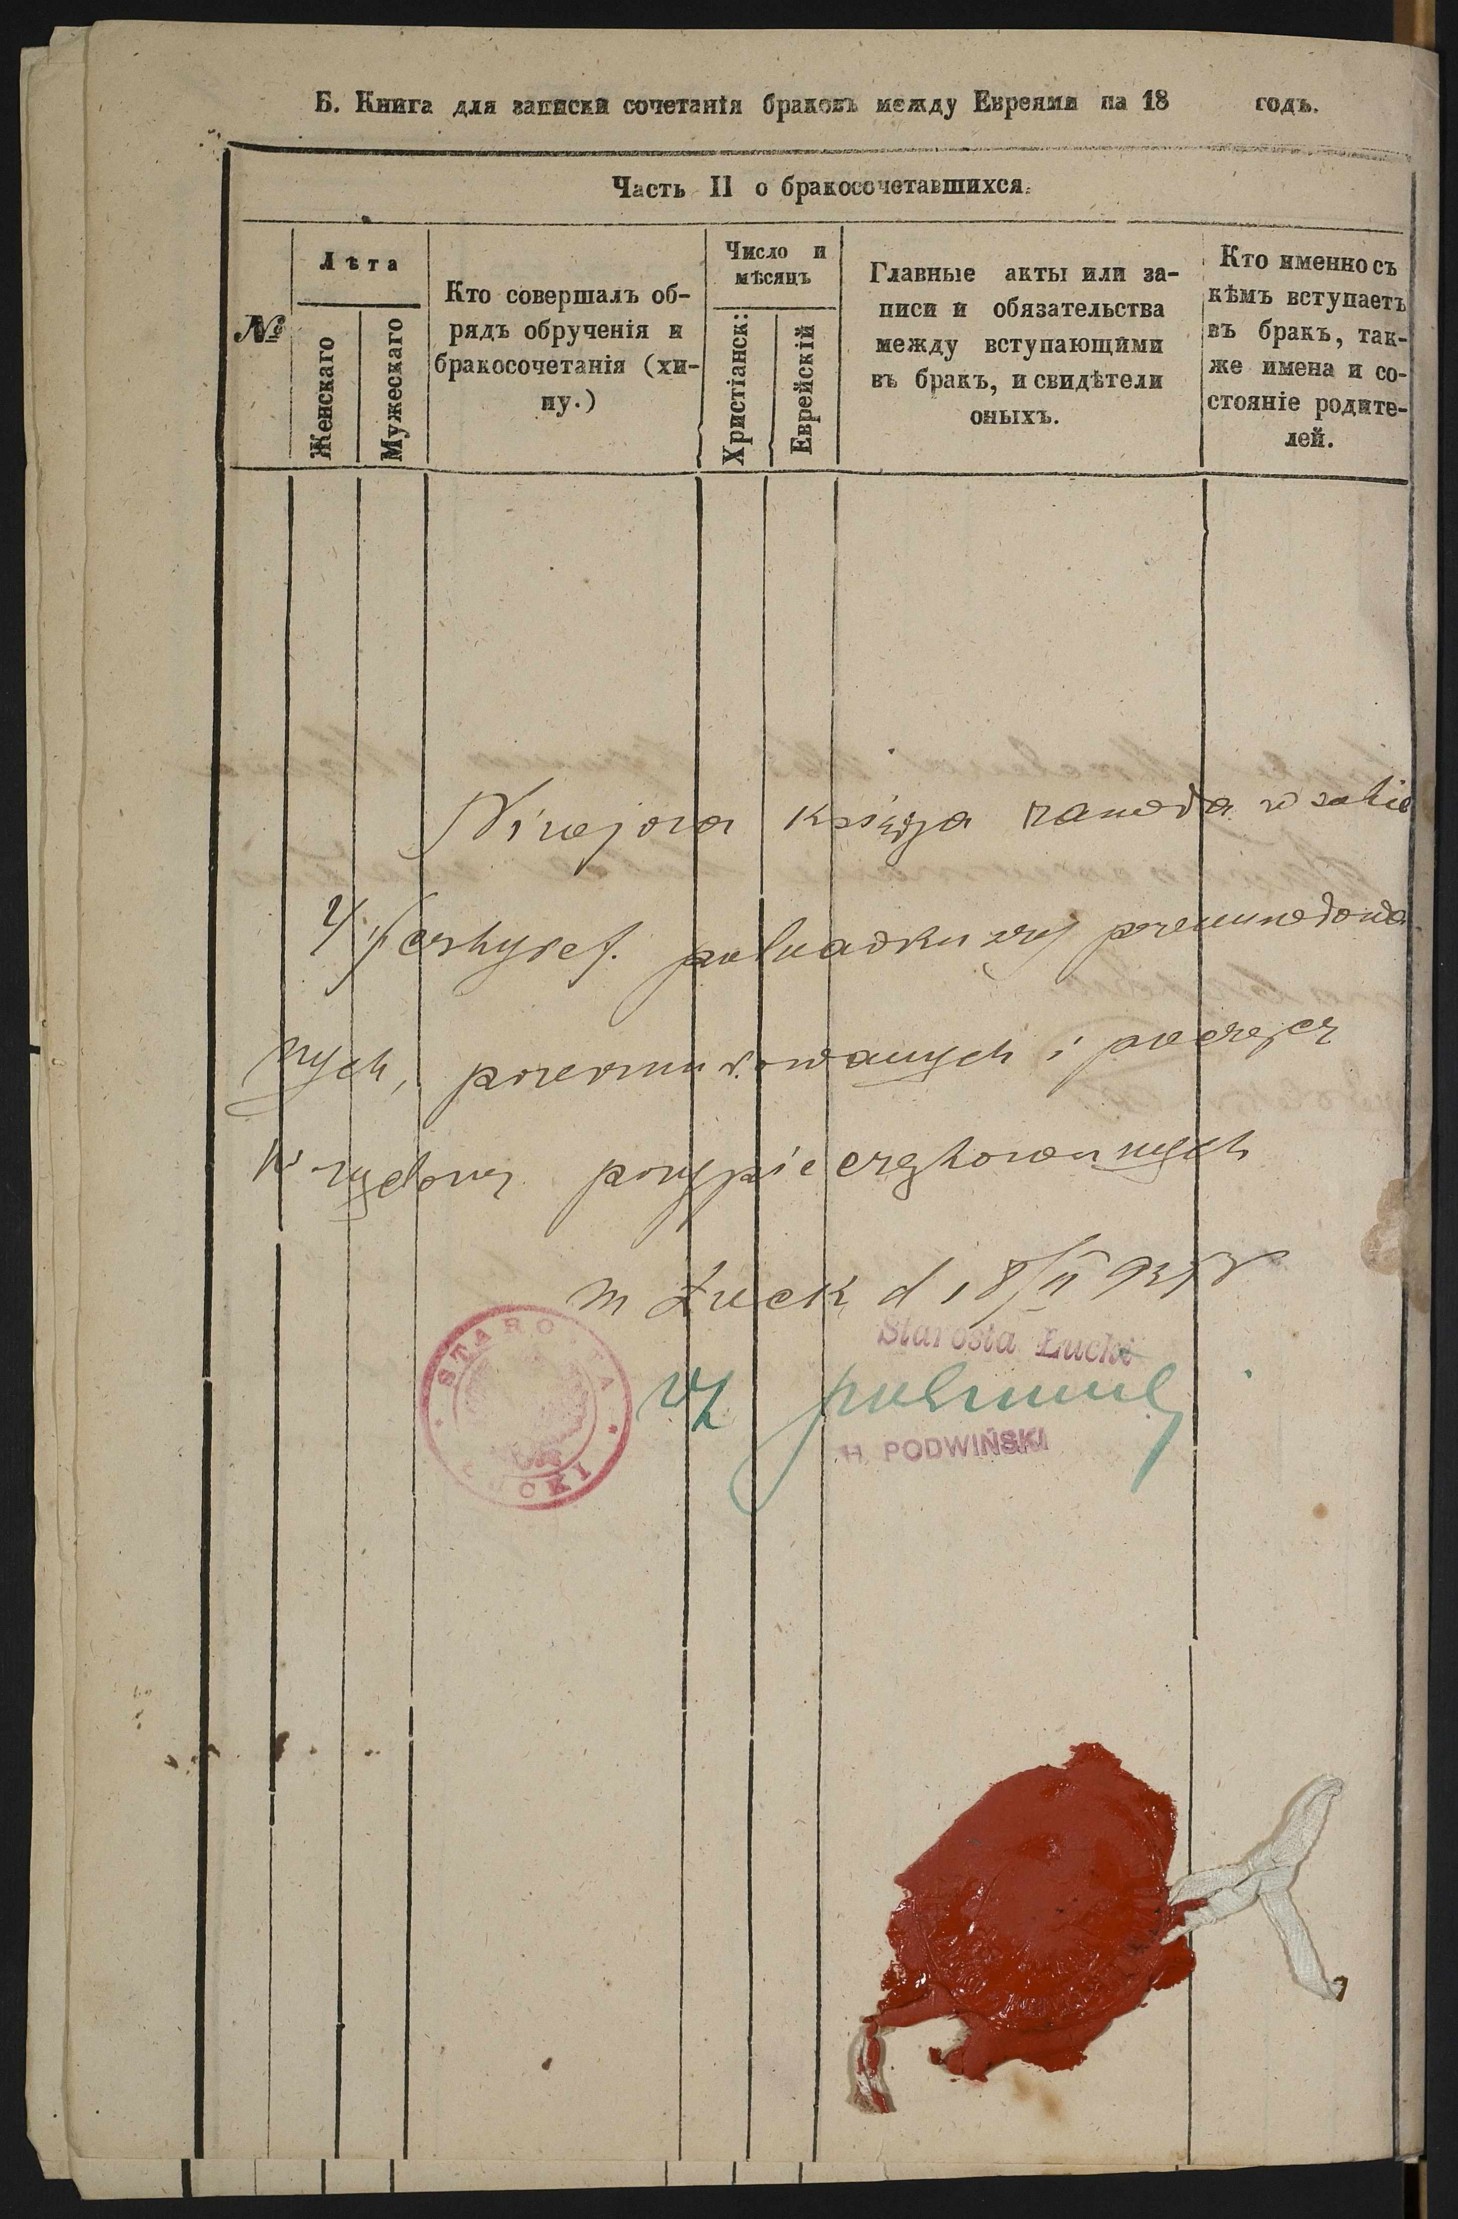 Б. Книга для записки сочетанія браковъ между Евреями на 18 годъ.
Часть II о бракосочетавшихся.
№
Лѣта
Женскаго
Мужескаго
Кто совершалъ об-
рядъ обрученія и
бракосочетанія (хи-
пу.)
Число и
мѣсяцъ
Христіанск:
Еврейскій
Главные акты или за-
писи и обязательства
между вступающими
въ бракъ, и свидѣтели
оныхъ.
Кто именно съ
кѣмъ вступаетъ
въ бракъ, так-
же имена и со-
стояніе родите-
лей.
Niniejsza księga zawiera w sobie
4/ cztery
nych, i pieczęcią
przypieczętowanych
m Łuck d 18/II 93
Starosta Łucki
STAROSTA ŁUCKI
H. PODWIŃSKI